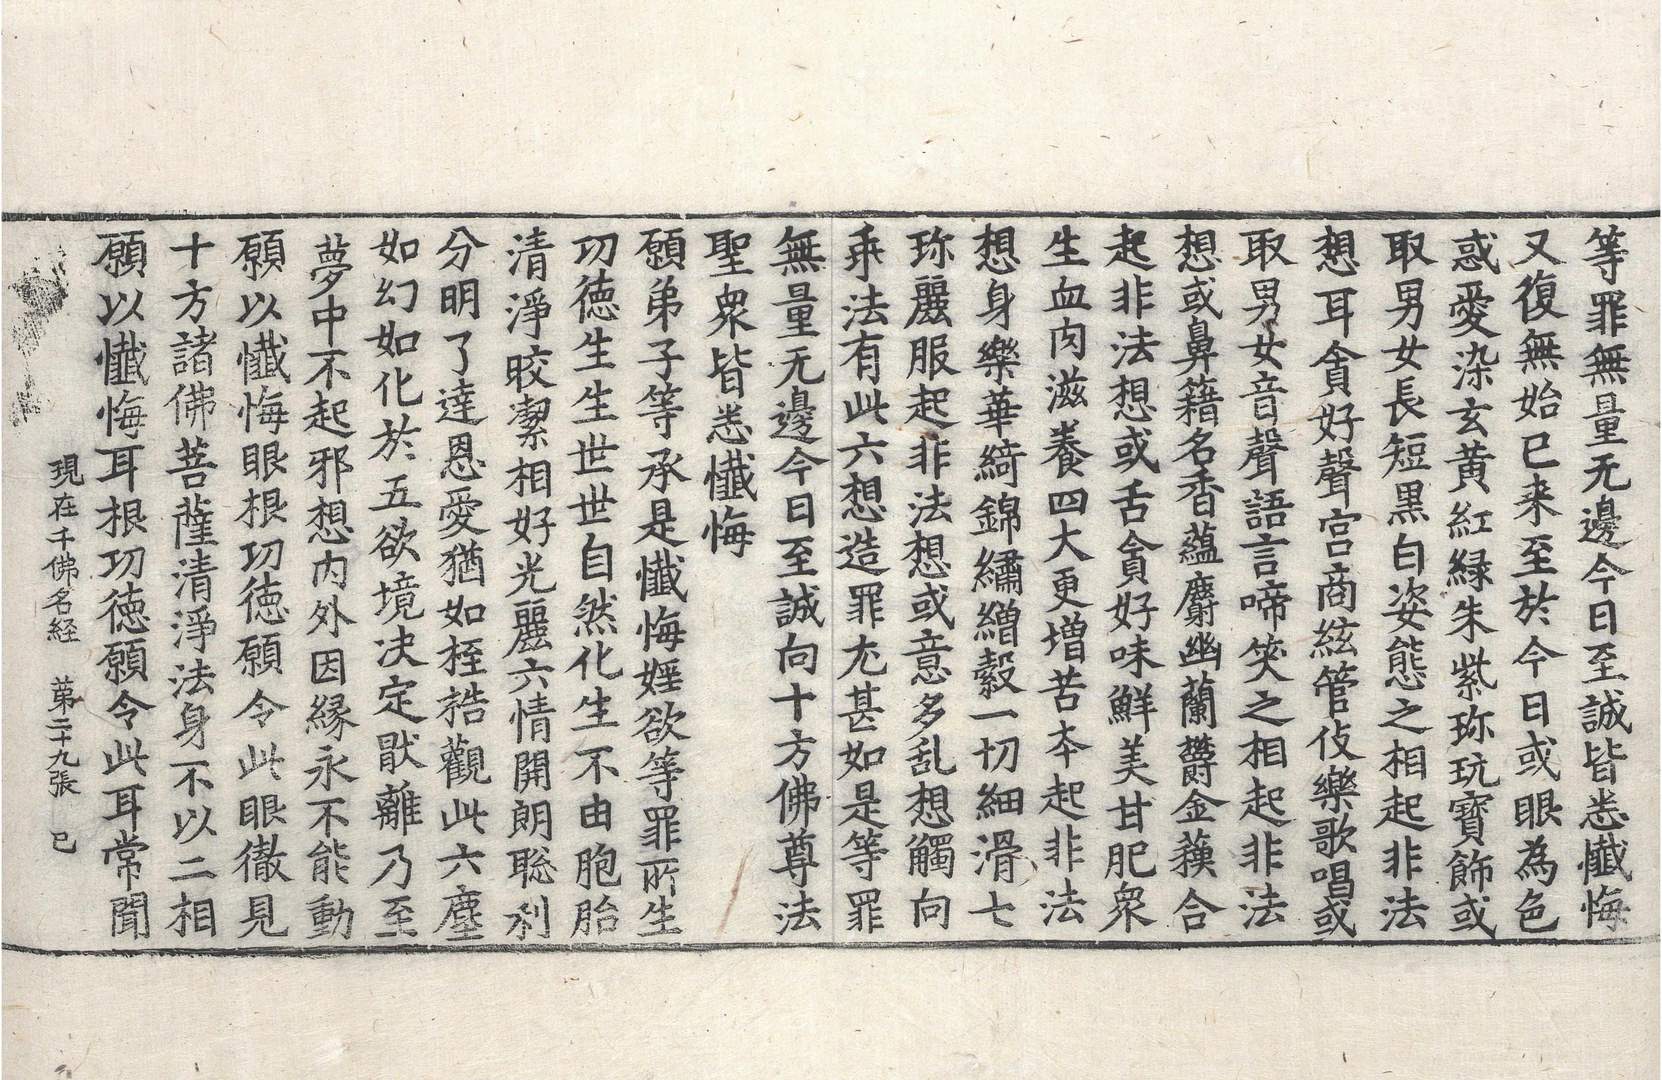 等罪無量无邊今日至誠皆悉懺悔
又復無始已来至於今日或眼為色
惑愛染玄黃紅綠朱紫珎玩寶飾或
取男女長短黑白姿態之相起非法
想耳貪好聲宮商絃管伎樂歌唱或
取男女音聲語言啼笑之相起非法
想或鼻籍名香蘊麝幽蘭欝金蘓合
起非法想或舌貪好味鮮美甘肥衆
生血肉滋養四大更增苦夲起非法
想身樂華綺錦繡繒縠一切細滑七
珎麗服起非法想或意多乱想觸向
乖法有此六想造罪尤甚如是等罪
無量无邊今日至誠向十方佛尊法
聖衆皆悉懺悔
願弟子等承是懺悔婬欲等罪所生
功德生生世世自然化生不由胞胎
清淨皎潔相好光麗六情開朗聡利
分明了達恩愛猶如桎梏觀此六塵
如幻如化於五欲境决定猒離乃至
夢中不起邪想內外因緣永不能動
願以懺悔眼根功德願令此眼徹見
十方諸佛菩薩清淨法身不以二相
願以懺悔耳根功德願令此耳常聞
現在千佛名経 苐二十九張 巳